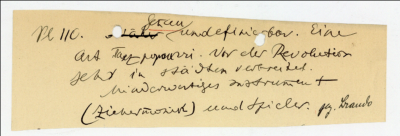 Vl 110. genau undefinierbar. Eine
Art Tanzpopourri. Vor der Revolution
sehr in städten verbreitet.
Minderwertiges Instrument +
(Ziehermonik) und Spieler.